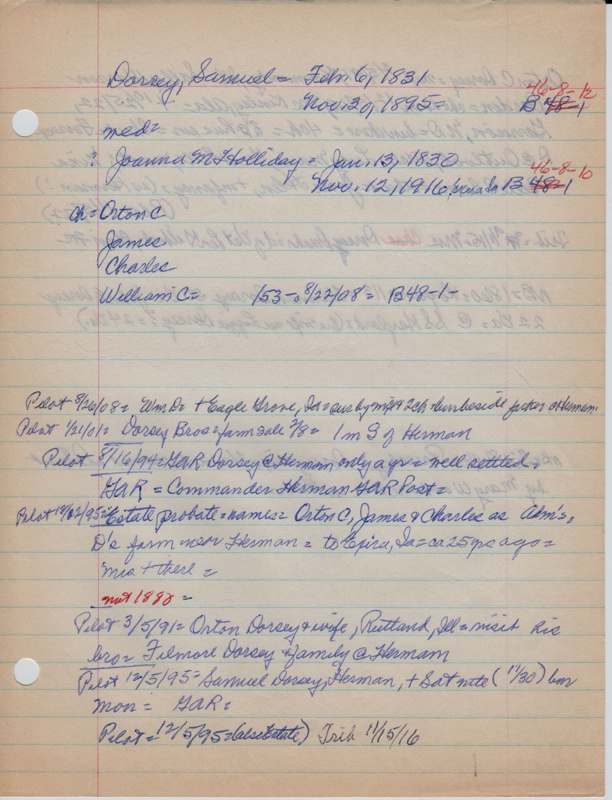 Dorsey, Samuel = Feb 6, 1831
Nov. 30, 1895 = B 48-1 46-8-12
med=
? Joanna M Holliday = Jan. 13, 1830
Nov. 12, 1916, B 48-1 46-8-10
ch = Orton C
James
Charles
William C = 8/22/08 = B48-1-
Pilot 8/26/08 = Wm D = + Eagle Grove, Ia = 2ch = Herman
Pilot 1/21/01 = Dorsey Bros = farm sale 2/8 = 1 m S of Herman
Pilot 8/16/94 = GAR Dorsey @ Herman only a yr = well settled =
GAR = Commander Herman GAR Post =
Pilot 12/12/95 = Estate probate = names = Orton C, James & Charles as Adm's,
D's farm near Herman = to Exira, Ia = ca 25 yrs ago =
Mrs + there =
not 1882 =
Pilot 3/5/91 = Orton Dorsey & wife, Rutland, Ill = visit his
bro = Filmore Dorsey & family @ Hermam
Pilot 12/5/95 = Samuel Dorsey, Herman, + Sat nite (11/30) bur
Mon = GAR =
Pilot = 12/5/95 = (also Estate) Trib 11/15/16